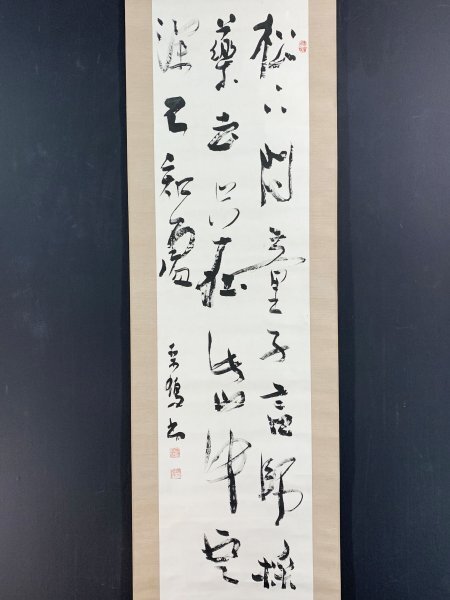 松下問童子言師採
藥去只在此山中雲
深不知處
書